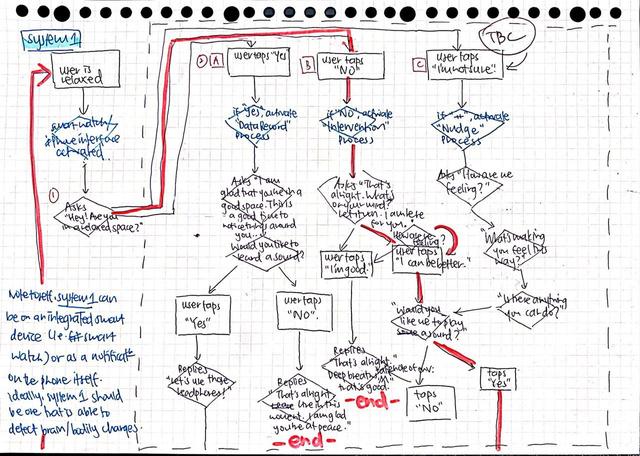 system 1
user is
relaxed
smartwatch/
phone interface
activated
①
Asks
"Hey! Are you
in a relaxed space?"
Note to self, system 1 can
be on an integrated smart
device (i.e. smart
watch) or as a notificatⁿ
on the phone itself.
ideally, system 1 should
be one that is able to
detect brain/bodily changes.
②
A
user taps "Yes
if "Yes", activate
"Data Record"
process
Asks "I am
glad that you're in a
good space. This is
a good time to
notice things around
you...
Would you like to
record a sound?
user taps
"Yes"
Replies
"Let's use those
headphones!
user taps
"NO".
Replies
"That's alright.
live in this
moment. I am glad
you're at peace."
-end-
B
user taps
"NO"
if "NO", activate
"Intervention"
process
Asks "That's
alright. What's
on your mind?
Let it run. I am here
for you.
How are we
feeling?
user taps
"I'm good."
user taps
"I can be better."
Replies
"That's alright.
Deep breath
that's good.
-end-
"Would you
like me to play
a sound?
taps
"NO"
taps
"Yes"
TBC
C
user taps
"I'm not sure"
if " ", activate
"Nudge"
process
Ask "How are we
feeling?
"What's making
you feel this
way?"
"Is there anything
you can do?"